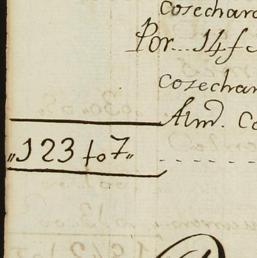 Cosechar
Por... 14 f
cosechar
Alm.d Co
"123 fo 7"